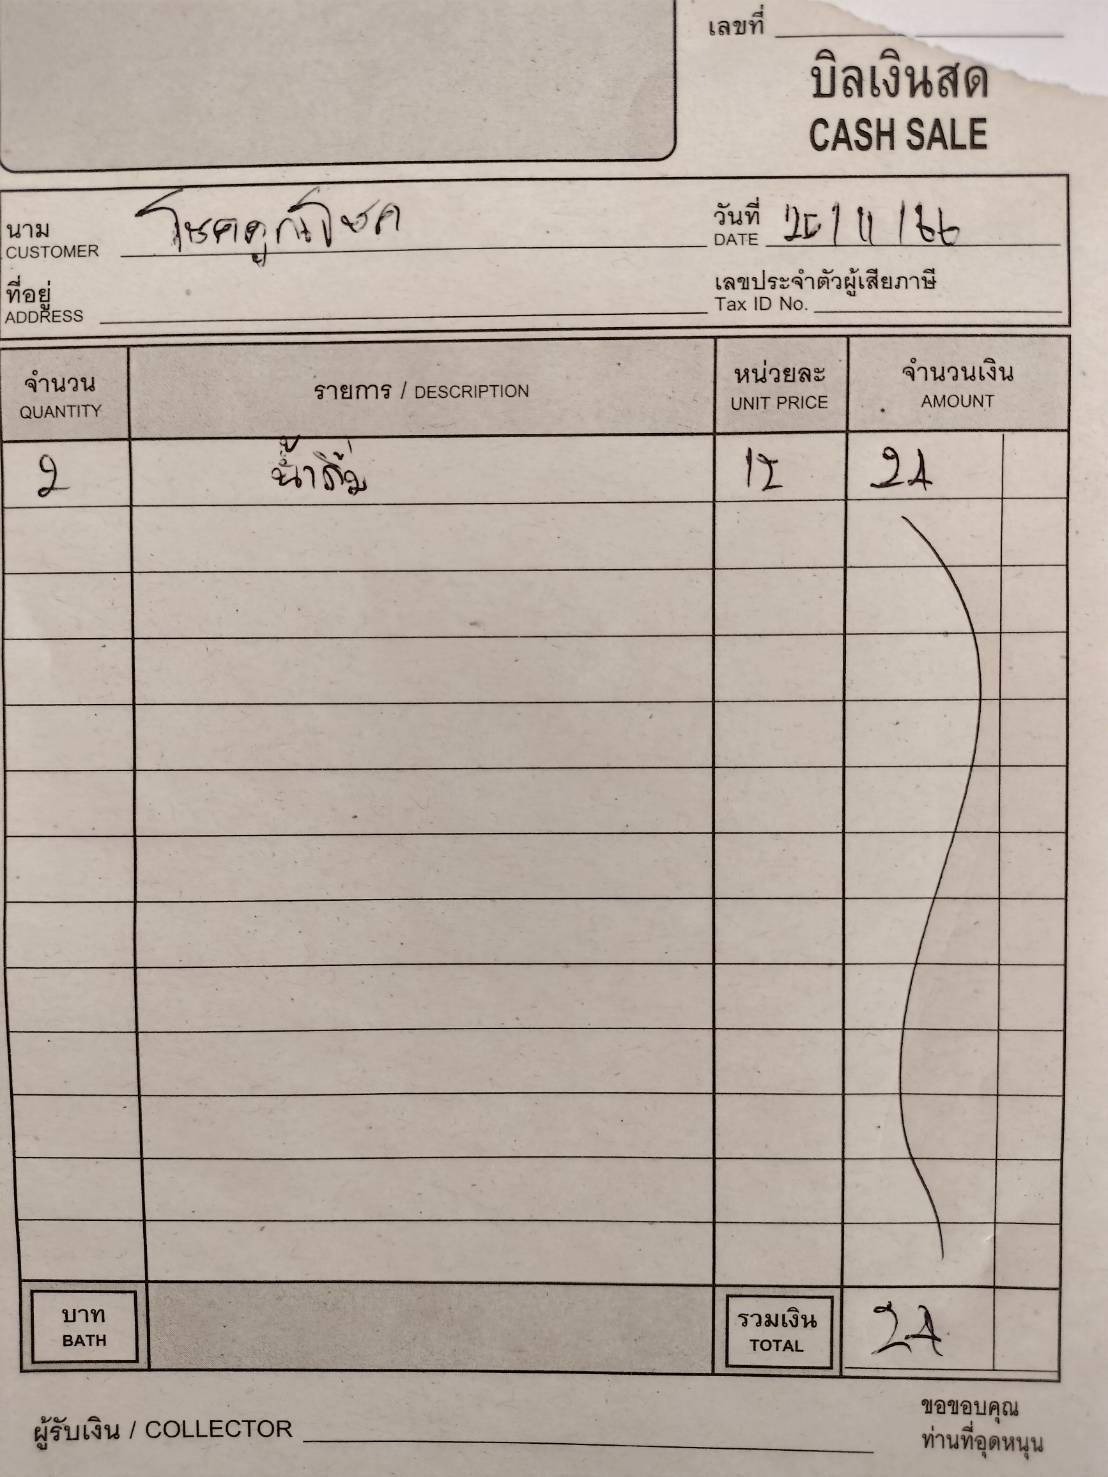 เลขที่
บิลเงินสด
CASH SALE
นาม โชคคูณโชค วันที่
CUSTOMER DATE /11/66
ที่อยู่ เลขประจำตัวผู้เสียภาษี
ADDRESS Tax ID No.
จำนวน รายการ / DESCRIPTION หน่วยละ จำนวนเงิน
QUANTITY UNIT PRICE AMOUNT
2 น้ำส้ม 12 24
บาท รวมเงิน 24
BATH TOTAL
ผู้รับเงิน / COLLECTOR
ขอขอบคุณ
ท่านที่อุดหนุน